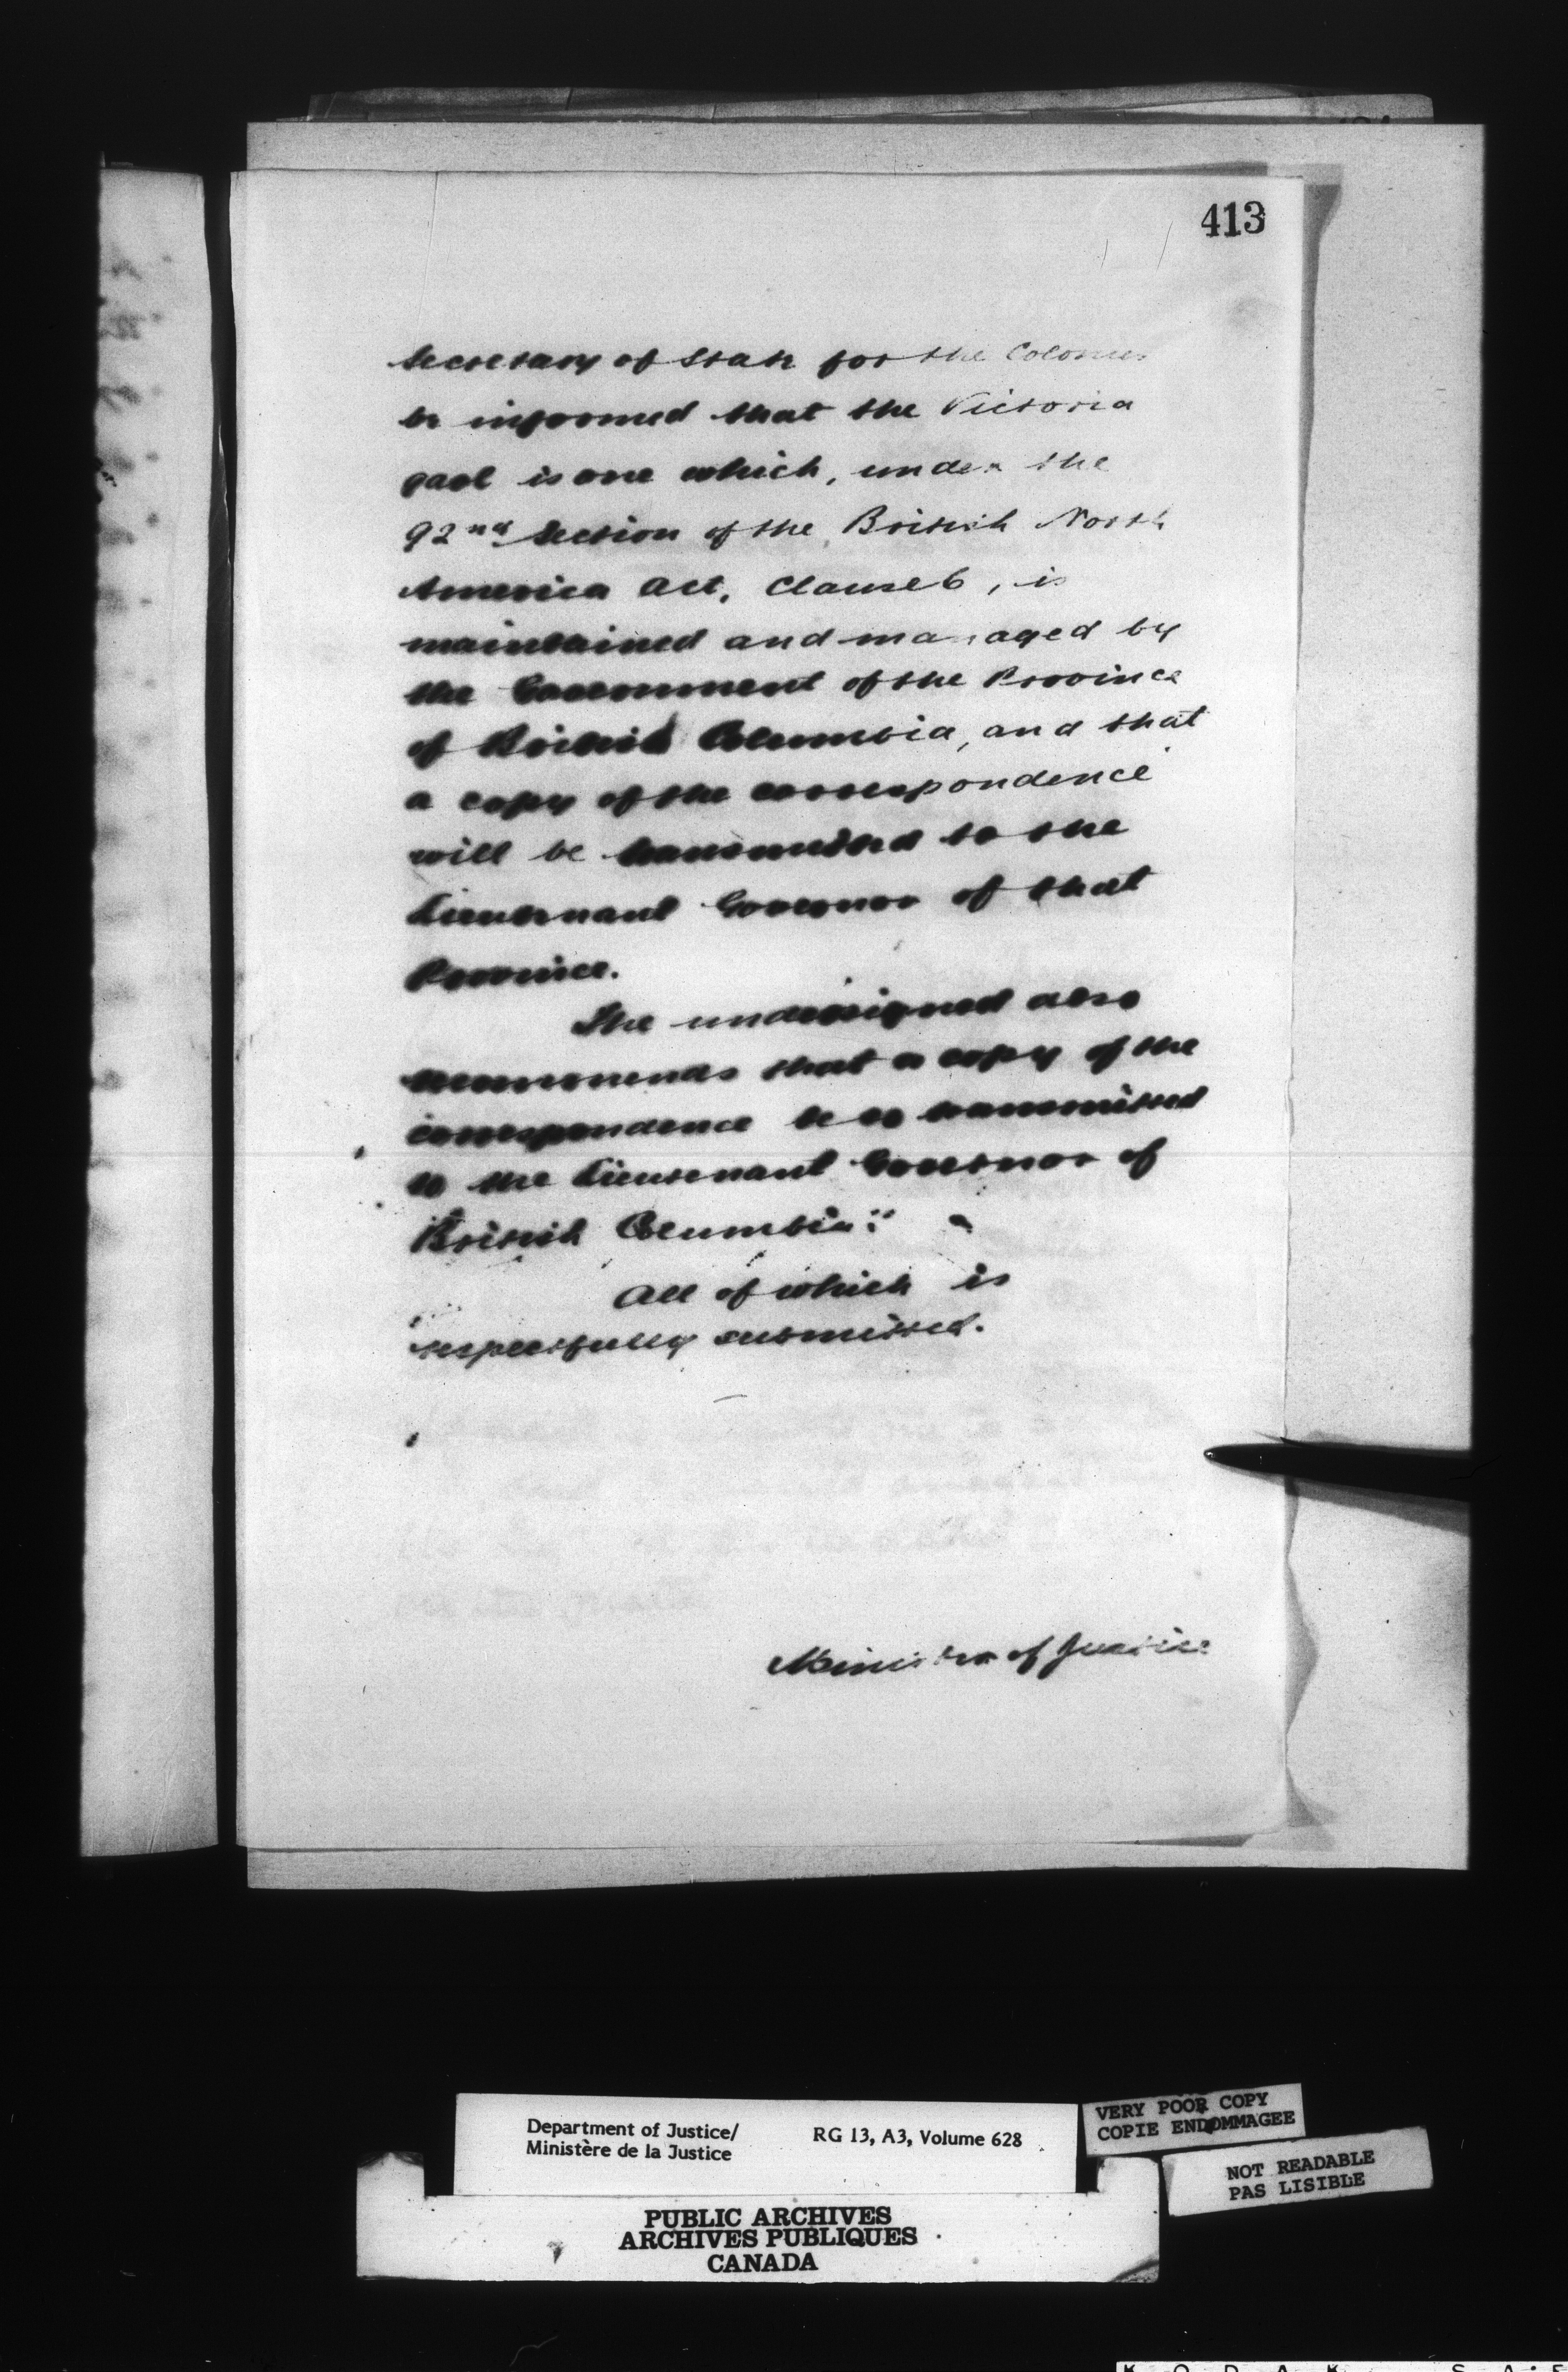 413
Secretary of State for the Colonies
be informed that the Victoria
gaol is one which, under the
92nd Section of the British North
America Act, Clause 6, is
maintained and managed by
the Government of the Province
of British Columbia, and that
a copy of the correspondence
will be transmitted to the
Lieutenant Governor of that
Province.
The undersigned also
recommends that a copy of the
correspondence be so transmitted
to the Lieutenant Governor of
British Columbia."
All of which is
respectfully submitted.
Minister of Justice
Department of Justice/
Ministère de la Justice
RG 13, A3, Volume 628
VERY POOR COPY
COPIE ENDOMMAGEE
NOT READABLE
PAS LISIBLE
PUBLIC ARCHIVES
ARCHIVES PUBLIQUES
CANADA